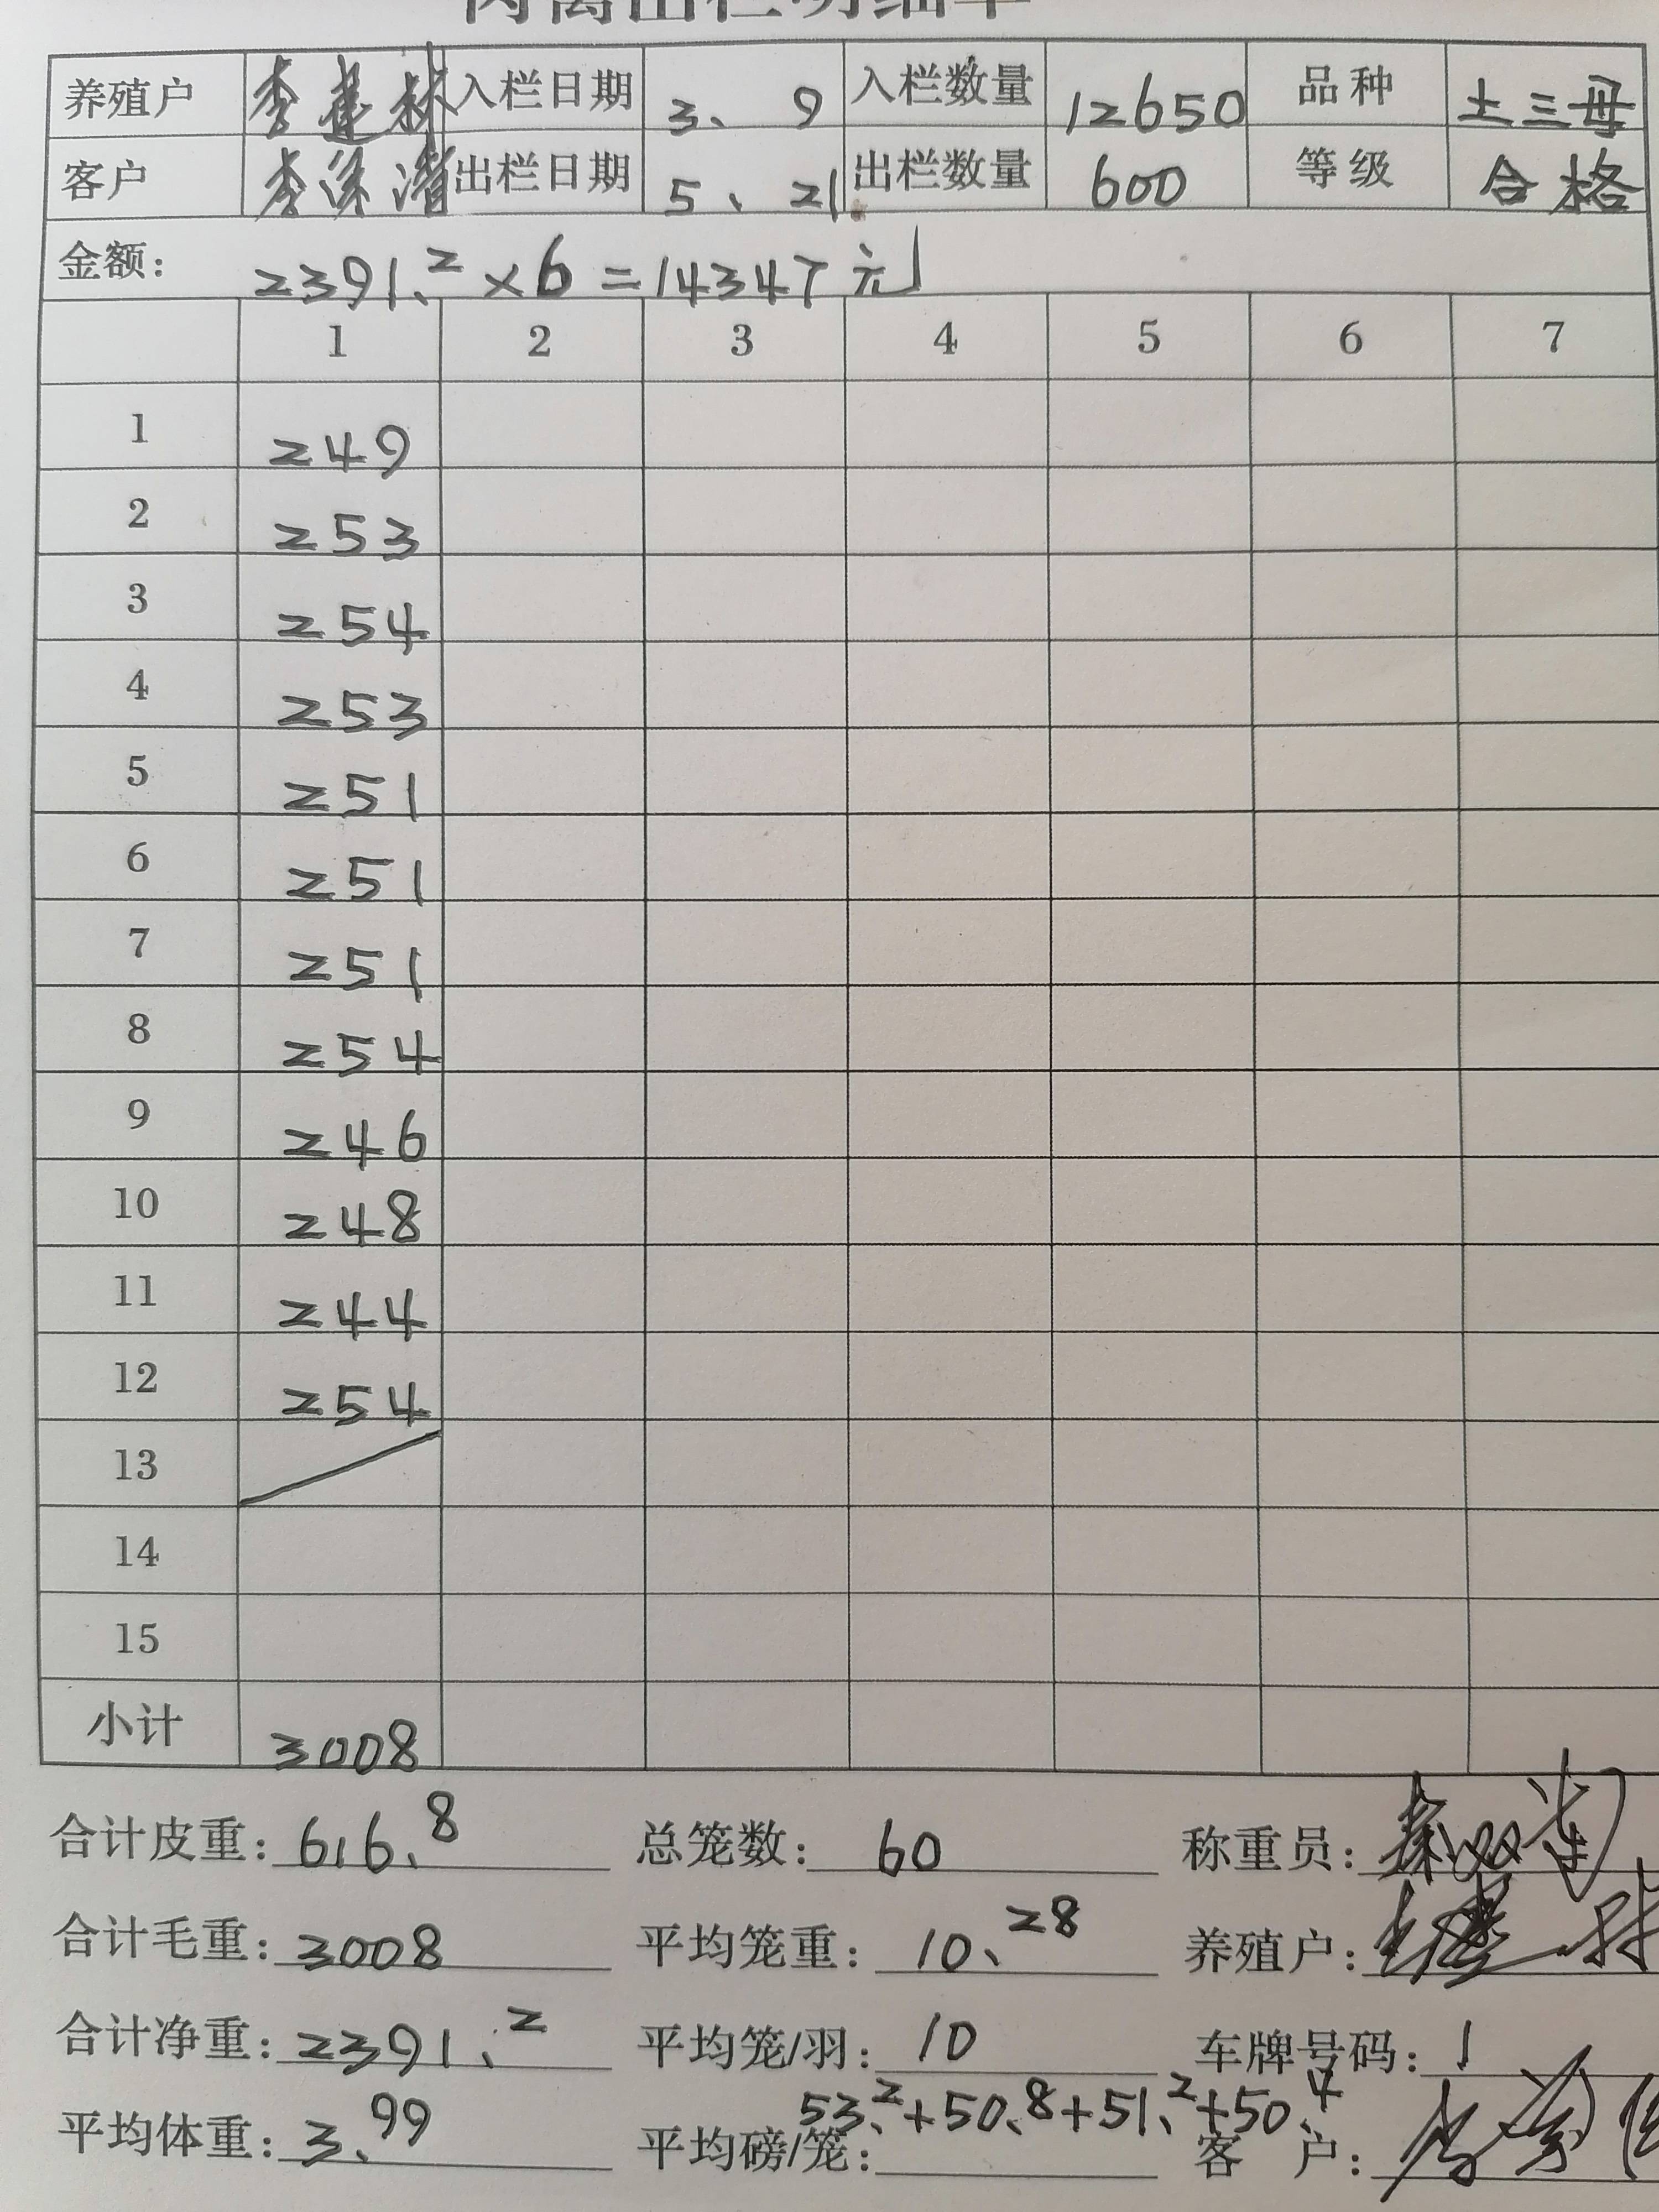 养殖户 李建林 入栏日期 3、9 入栏数量 12650 品种 土三母
客户 李 出栏日期 5、21 出栏数量 600 等级 合格
金额: 2391.2×6=14347元
1 2 3 4 5 6 7
1 249
2 253
3 254
4 253
5 251
6 251
7 251
8 254
9 246
10 248
11 244
12 254
13
14
15
小计 3008
合计皮重: 616.8 总笼数: 60 称重员:
合计毛重: 3008 平均笼重: 10.28 养殖户:
合计净重: 2391.2 平均笼/羽: 10 车牌号码: 1
53.2+50.8+51.2+50.4
平均体重: 3.99 平均磅/笼: 客 户: